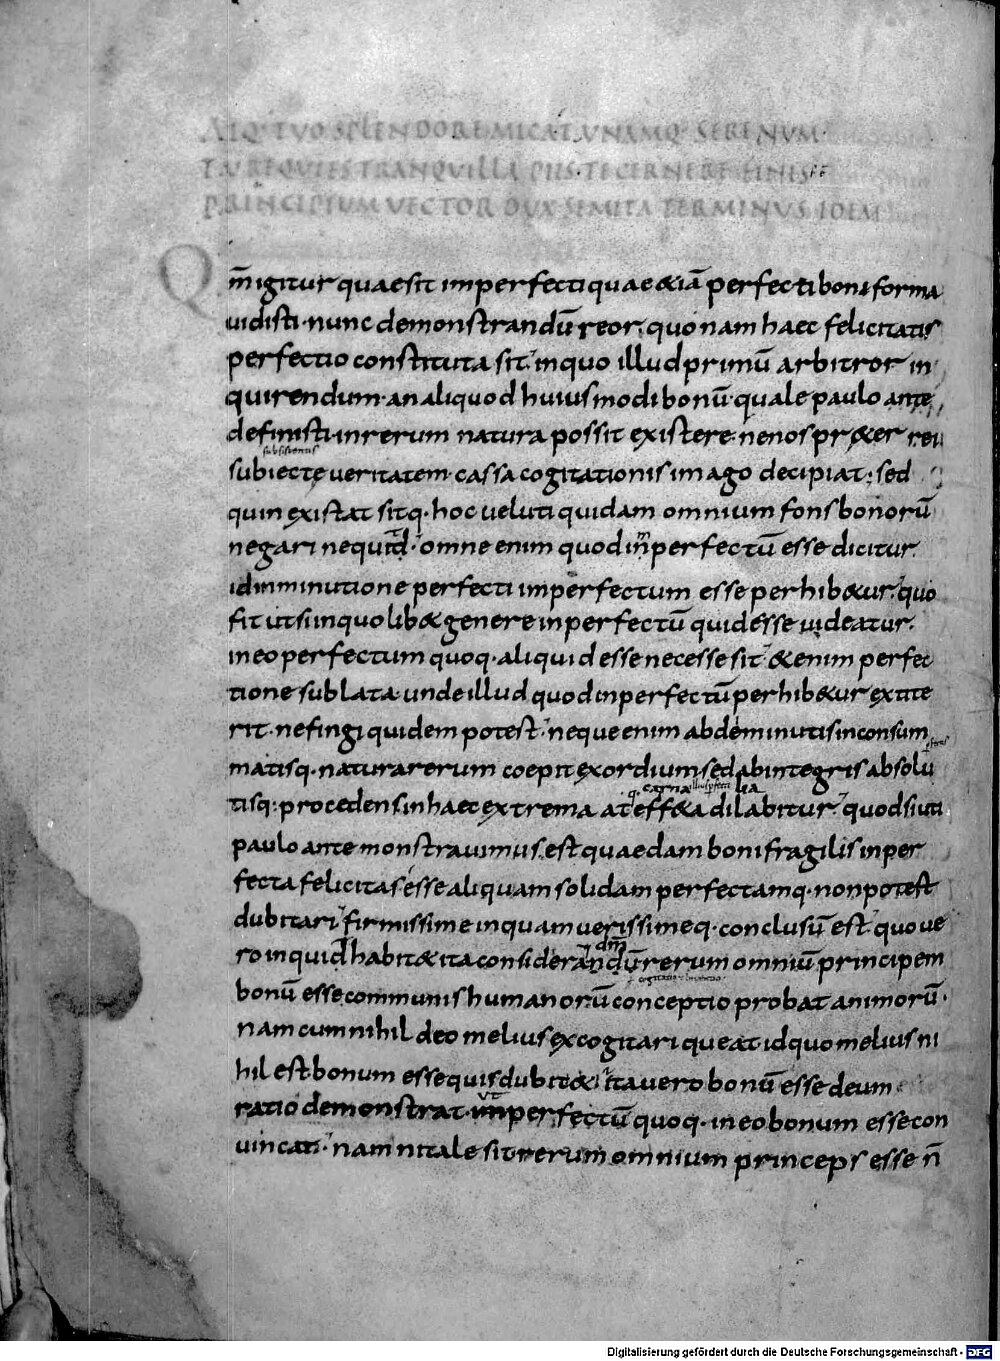 ATQ· TVO SPLENDORE MICA TV NAMQ· SERENVM·
TV REQVIES TRANQVILLA PIIS· TE CERNERE FINIS
PRINCIPIUM VECTOR DUX SEMITA TERMINVS IDEM
Qm̄ igitur quae sit imperfecti quae & iā perfecti boni forma
uidisti· nunc demonstrandū reor· quonam haec felicitatis
perfectio constituta sit· inquo illud primū arbitror in
quirendum· an aliquod huiusmodi bonū· quale paulo ante
definisti· in rerum natura possit existere· ne nos pr&er rei
subsistentis
subiectę ueritatem· cassa cogitationis imago decipiat; sed
quin existat sitq· hoc ueluti quidam omnium fons bonorū
negari nequid· omne enim quod inperfectū esse dicitur·
id inminutione perfecti imperfectum esse perhib&ur· quo
fit ut si in quolib& genere inperfectū quid esse uideatur·
in eo perfectum quoq· aliquid esse necesse sit· &enim perfec
tione sublata· unde illud quod inperfectū perhib&ur extite
rit· ne fingi quidem potest· neque enim ab deminutis inconsum
matisq· natura rerum coepit exordium sed ab integris absolu
tisq: procedens in haec extrema at eff&a dilabitur· quod si uti
paulo ante monstrauimus· est quaedam boni fragilis inper
fecta felicitas· esse aliquam solidam perfectamq· non potest
dubitari· firmissime inquam uerissimeq· conclusū est· quo ue
ro inquid habit& ita considera
dm̄
rerum omniū principem
bonū esse communis humanorū conceptio probat animorū·
nam cum nihil deo melius excogitari queat· id quo melius ni
hil est bonum esse quis dubit&· ita uero bonū esse deum
ratio demonstrat·
ut
perfectū quoq· in eo bonum esse con
uincat· nam ni tale sit rerum omnium princeps esse n̄